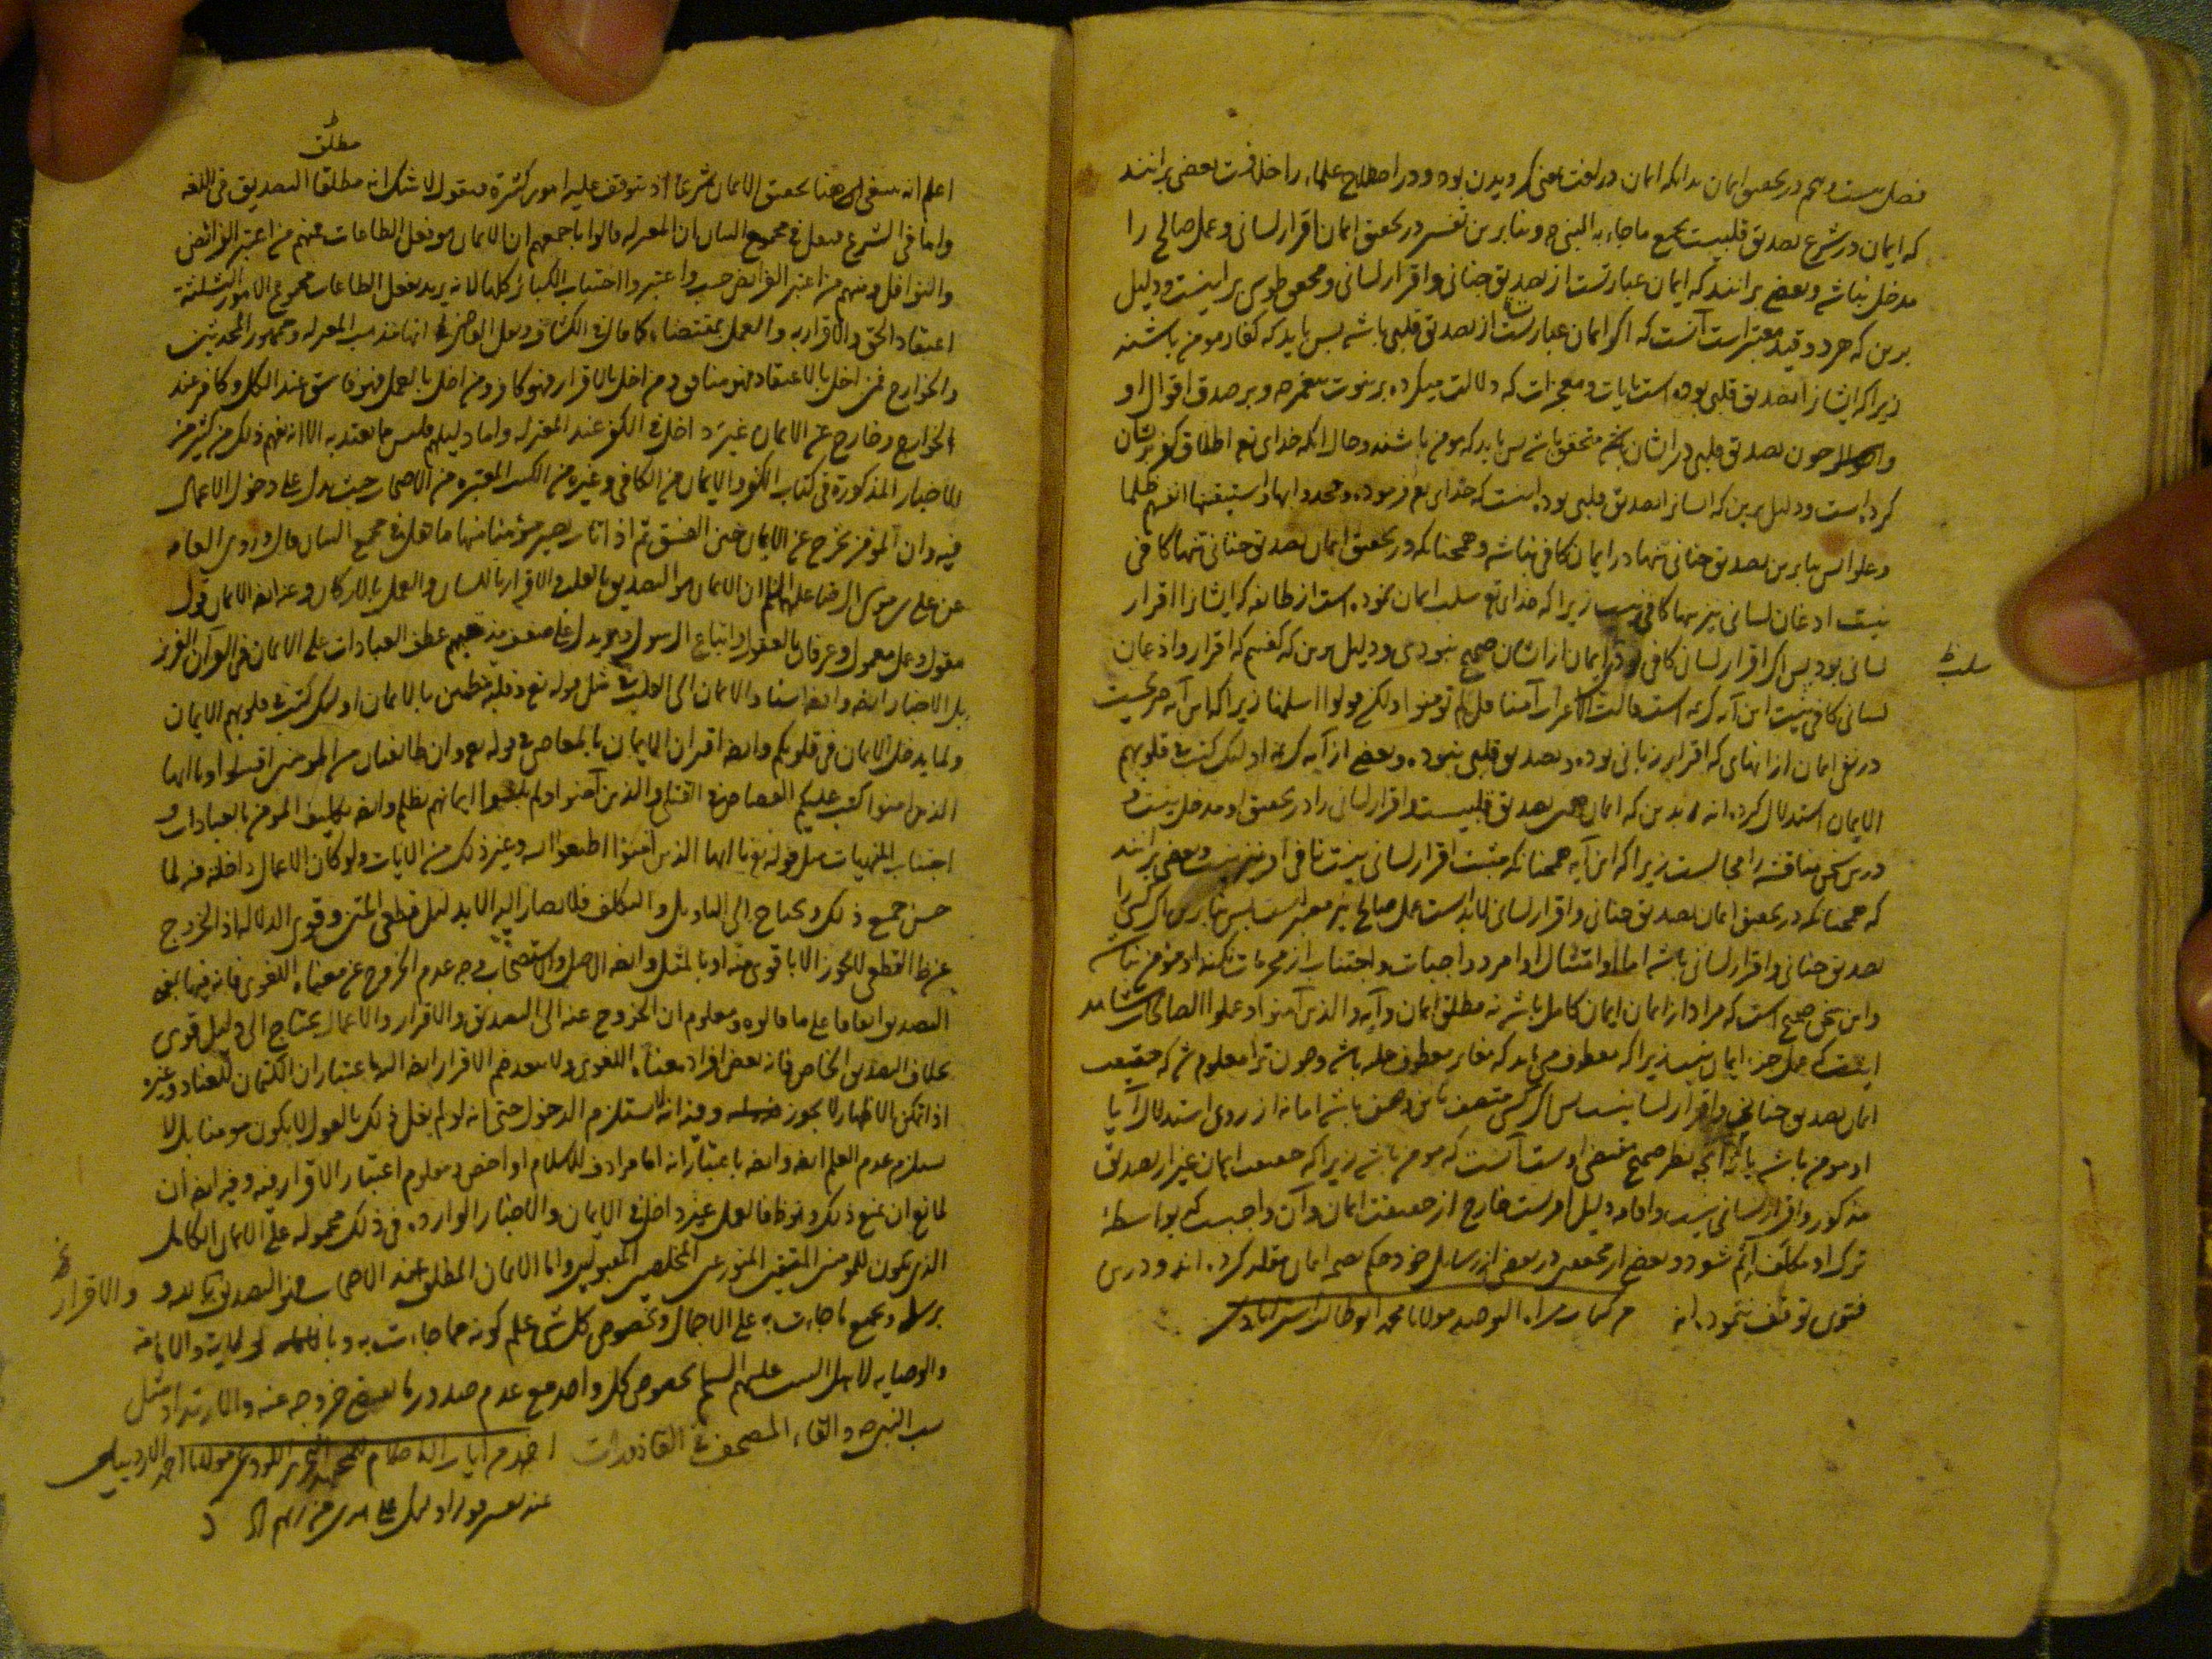 فصل بیست و نهم در تحقیق ایمان بدانکه ایمان در لغت بمعنی گرویدن بود و در اصطلاح علماء را خلافست بعضی برانند
که ایمان در شرع تصدیق قلبیست بجمیع ما جاء به النبی ص و بنا برین تفسیر در تحقیق ایمان اقرار لسانی و عمل صالح را
مدخل نباشد و بعضی برانند که ایمان عبارتست از تصدیق جنانی و اقرار لسانی و محقق طوسی برینست و دلیل
برین که هر دو قید معتبر است آنست که اگر ایمان عبارت از تصدیق قلبی باشد پس باید که کفار مومن باشند
زیرا که ایشانرا تصدیق قلبی بوده است بایات و معجزات که دلالت میکرده بر نبوت پیغمبر ص و بر صدق اقوال او
و احوال او چون تصدیق قلبی در ایشان متحقق باشد پس باید که مومن باشند و حال آنکه خدای تع اطلاق کفر بر ایشان
کرده است و دلیل برین که ایشانرا تصدیق قلبی بوده اینست که خدای تع فرموده و جحدوا بها و استیقنتها انفسهم ظلما
و علوا پس بنا برین تصدیق جنانی تنها در ایمان کافی نباشد و همچنانکه در تحقیق ایمان تصدیق جنانی تنها کافی
نیست اذعان لسانی نیز تنها کافی نیست زیرا که خدای تع سلب ایمان نموده است از طایفه که ایشانرا اقرار
لسانی بود پس اگر اقرار لسان کافی بودی سلب ایمان از ایشان صحیح نبودی و دلیل برین که گفتیم که اقرار و اذعان
لسانی کافی نیست این آیه کریمه است قالت الاعراب آمنا قل لم تومنوا ولکن قولوا اسلمنا زیرا که این آیه صریحست
در نفی ایمان از آنهائی که اقرار زبانی بوده و تصدیق قلبی نبوده و بعضی از آیه کریمه اولئک کتب فی قلوبهم
الایمان استدلال کرده اند بدین که ایمان همین تصدیق قلبیست و اقرار لسانی را در تحقیق او مدخل نیست و
درین سخن مناقشه را مجالست زیرا که این آیه همچنانکه مثبت اقرار لسانی نیست نافی آن نیز نیست و بعضی برانند
که همچنانکه در تحقیق ایمان تصدیق جنانی و اقرار لسانی لابد است عمل صالح نیز معتبر است پس بنا برین اگر کسی را
تصدیق جنانی و اقرار لسانی باشد اما امتثال اوامر و واجبات و اجتناب از محرمات نکند او مومن نباشد
و این سخن صحیح است که مراد از ایمان ایمان کامل باشد نه مطلق ایمان و آیه و الذین آمنوا و عملوا الصالحات شاهد
اینست که عمل جزء ایمان نیست زیرا که معطوف می باید که مغایر معطوف علیه باشد و چون ترا معلوم شد که حقیقت
ایمان تصدیق جنانی و اقرار لسانیست پس اگر کسی متصف باین وصف باشد اما نه از روی استدلال آیا
او مومن باشد یا نه آنچه نظر صحیح مقتضی اوست آنست که مومن باشد زیرا که حقیقت ایمان غیر از تصدیق
مذکور و اقرار لسانی نیست و اقامه دلیل امریست خارج از حقیقت ایمان و آن واجبیست که بواسطهٔ
ترک او مکلف آثم شود و بعضی از محققین در بعضی از رسایل خود حکم بصحه ایمان مقلد کرده اند و درین
فتوی توقف ننموده اند من کتاب التوحید مولانا محمد ابوطالب استرابادی
سلب ظ
مطلق ظ
اعلم انه ینبغی هنا تحقیق الایمان شرعا اذ یتوقف علیه امور کثیرة فنقول لا شک انه مطلقا التصدیق فی اللغه
واما فی الشرع فنقل فی مجمع البیان ان المعتزله قالوا باجمعهم ان الایمان هو فعل الطاعات فمنهم من اعتبر الفرائض
والنوافل ومنهم من اعتبر الفرائض حسب واعتبروا اجتناب الکبائر کلها لانه یرید بفعل الطاعات مجموع الامور الثلثة
اعتقاد الحق والاقرار به والعمل بمقتضاه کما قال فی الکشاف ونقل القاضی انها مذهب المعتزله وجمهور المحدثین
والخوارج فمن اخل بالاعتقاد فهو منافق ومن اخل بالاقرار فهو کافر ومن اخل بالعمل فهو فاسق عند الکل وکافر عند
الخوارج وخارج عن الایمان غیر داخل فی الکفر عند المعتزله واما دلیلهم فلیس مما یعتد به الا انه یفهم ذلک من کثیر من
الاخبار المذکورة فی کتاب الکفر والایمان من الکافی وغیره من الکتب المعتبره من الاصحاب حیث یدل علی دخول الاعمال
فیه وان المومن یخرج عن الایمان حین الفسق ثم اذا تاب یصیر مؤمنا منها ما نقل فی مجمع البیان قال وروی العامه
عن علی بن موسی الرضا علیهما السلم ان الایمان هو التصدیق بالقلب والاقرار باللسان والعمل بالارکان وعنه ایضا الایمان قول
مقول وعمل معمول وعرفان بالعقول واتباع الرسول ص ویدل علی ضعف مذهبهم عطف العبادات علی الایمان فی القرآن العزیز
بل الاخبار ایضا وایضا اسناد الایمان الی القلب فی مثل قوله تع وقلبه مطمئن بالایمان اولئک کتب فی قلوبهم الایمان
ولما یدخل الایمان فی قلوبکم وایضا اقتران الایمان بالمعاصی فی قوله تع وان طائفتان من المومنین اقتتلوا ویا ایها
الذین امنوا کتب علیکم القصاص فی القتلی والذین آمنوا ولم یلبسوا ایمانهم بظلم وایضا تکلیف المومن بالعبادات و
اجتناب المنهیات مثل قوله تع یا ایها الذین آمنوا اطیعوا الله وغیر ذلک من الآیات ولو کان الاعمال داخلة فیه لما
حسن جمیع ذلک ویحتاج الی التاویل والتکلف فلا یصار الیه الا بدلیل قطعی المتن وقوی الدلاله اذ الخروج
عن ظ القطعی لا یجوز الا باقوی منه او بالمثل وایضا الاصل والاستصحاب یوجب عدم الخروج عن معناه اللغوی فانه فیها بمعنی
التصدیق اتفاقا علی ما قالوه ومعلوم ان الخروج عنه الی التصدیق والاقرار والاعمال یحتاج الی دلیل قوی
بخلاف التصدیق الخاص فانه بعض افراد معناه اللغوی ولا یبعد ضم الاقرار ایضا الیه باعتبار ان الکتمان للعناد وغیره
اذا تمکن بالاظهار لا یجوز وفیه انه لا یستلزم الدخول حتی انه لو لم یفعل ذلک بالقول لا یکون مومنا بل لا
یستلزم عدم العلم ایضا وایضا باعتبار انه اما مرادف للاسلام او اخص ومعلوم اعتبار الاقرار فیه وفیه ایضا ان
لمانع ان یمنع ذلک وهو ظ فالعمل غیر داخل فی الایمان والاخبار الوارده فی ذلک محموله علی الایمان الکامل
الذی یکون للمومنین المتقین المتورعین المخلصین المقبولین واما الایمان المطلق عند الاصحاب فهو التصدیق بالله و والاقرار
برسله وبجمیع ما جاءت به علی الاجمال وبخصوص کل شیء علم کونه مما جاءت به وبالولایة والامامه
والوصایه لاهل البیت علیهم السلم بخصوص کل واحد مع عدم صدور ما یقتضی خروجه عنه والارتداد مثل
سب النبی ص والقاء المصحف فی القاذورات اخذ من آیات الاحکام للمجتهد مولانا احمد الاردبیلی
عند تفسیر قوله اولئک علی هدی من ربهم